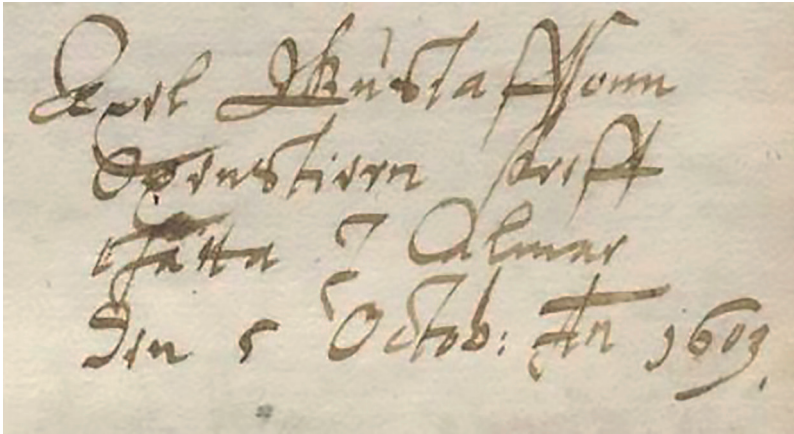 Axel Gustaffsonn
Oxenstiern skreff
thetta I Calmar
den 5 Octob: An 1603.